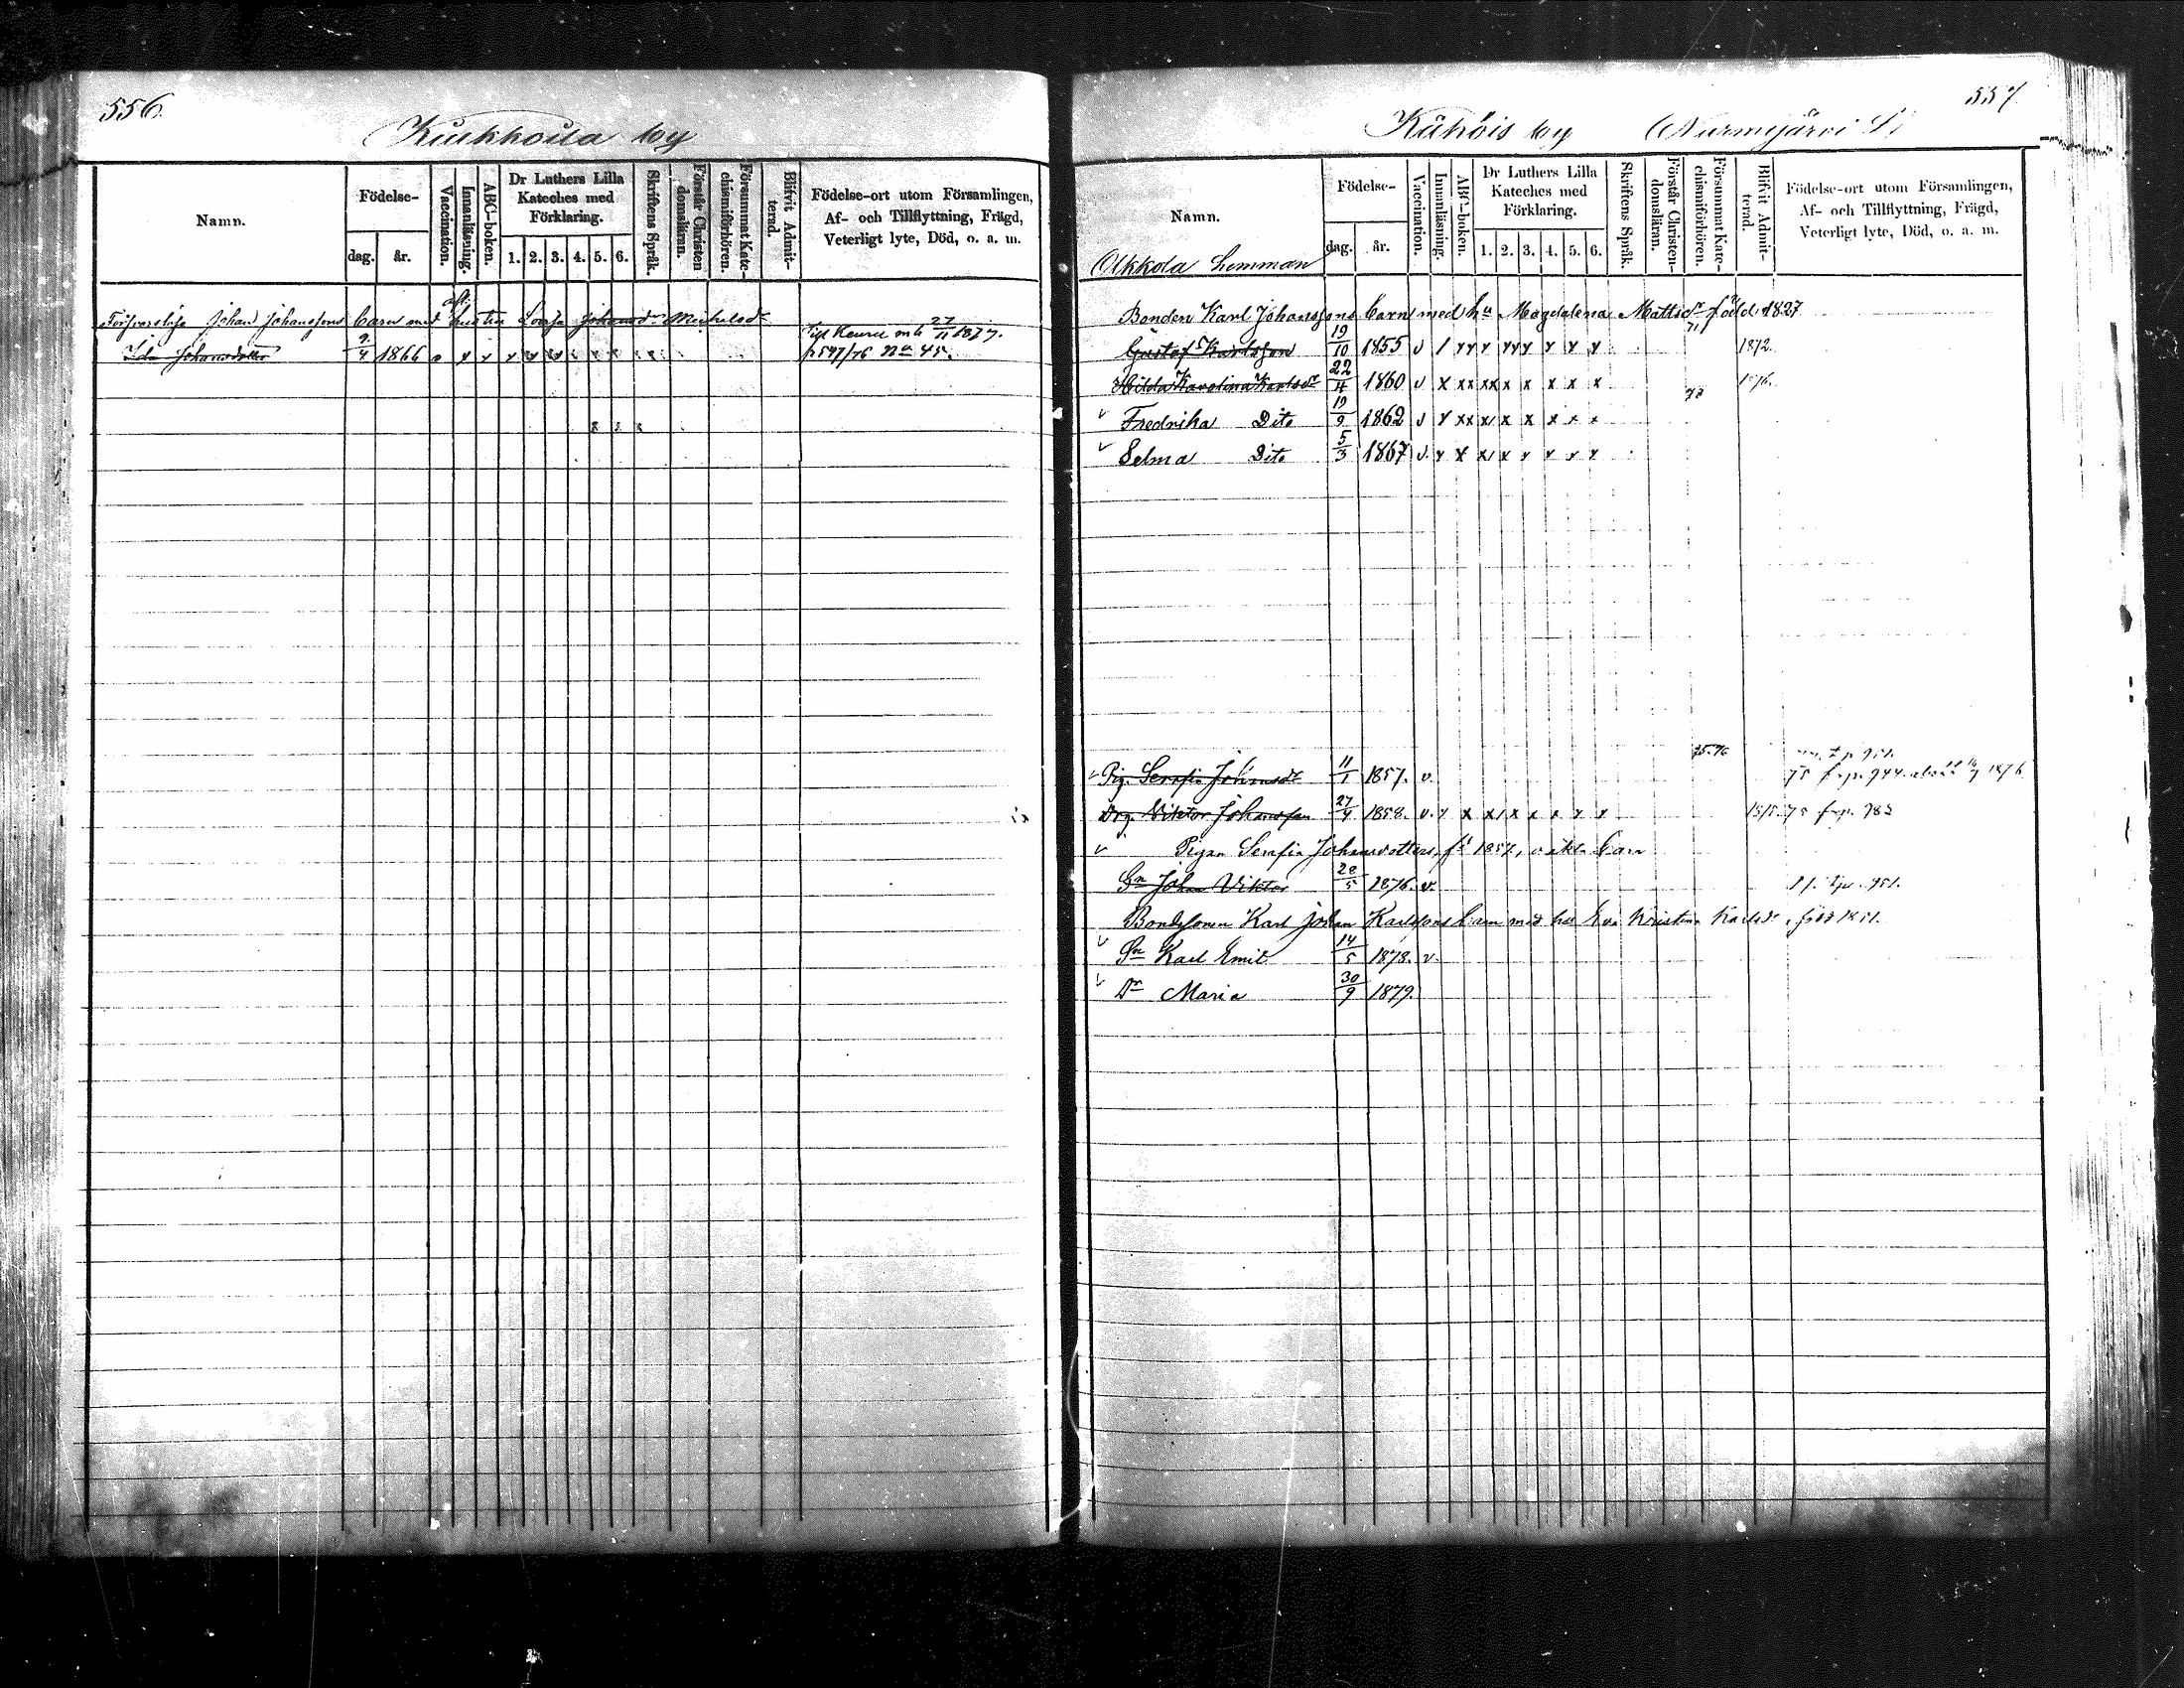 556
Kuukkoila by
Namn.
Födelse-
dag. år.
Vaccination.
Innanläsning.
ABC-boken.
Dr Luthers Lilla
Kateches med
Förklaring.
1. 2. 3. 4. 5. 6.
Skriftens Språk.
Förstår Christen
domsläran.
Försummat Kate-
chismiförhören.
Blifvit Admit-
terad.
Födelse-ort utom Församlingen,
Af- och Tillflyttning, Frägd,
Veterligt lyte, Död, o. a. m.
Johan Johanssons barn med hustru Lovisa Johansdr Michelsdr
Till Keuru mb 27/11 1877.
Ida Johansdotter 9/4 1866 p 547/76 No 45.
557
Kähöis by (Nurmijärvi
Namn.
Ukkola hemman
Födelse-
dag. år.
Vaccination.
Innanläsning.
ABC-boken.
Dr Luthers Lilla
Kateches med
Förklaring.
1. 2. 3. 4. 5. 6.
Skriftens Språk.
Förstår Christen-
domsläran.
Försummat Kate-
chismiförhören.
Blifvit Admit-
terad.
Födelse-ort utom Församlingen,
Af- och Tillflyttning, Frägd,
Veterligt lyte, Död, o. a. m.
Bonden Karl Johanssons barn med hu Magdalena Mattsdr född 1827
Gustaf Karlsson 19/10 1855 v 71 1872.
Hilda Karolina Karlsdr 22/4 1860 v 1876.
v Fredrika Dito 19/9 1862 v
v Selma Dito 5/3 1867 v
75.76
v Pig. Serafia Johansdr 11/1 1857. v. 75 fr p. 944. 1876
Drg. Viktor Johansson 27/4 1858. v. 75 fr p. 983
v Pigan Serafia Johansdotters, fd 1857, oäkta barn
Sn Johan Viktor 28/5 1876. v. 951.
Bondesonen Karl Johan Karlssons barn med hu Eva Kristina Karlsdr, född 1851.
v Sn Karl Emil 14/5 1878. v.
v Dr Maria 30/9 1879.